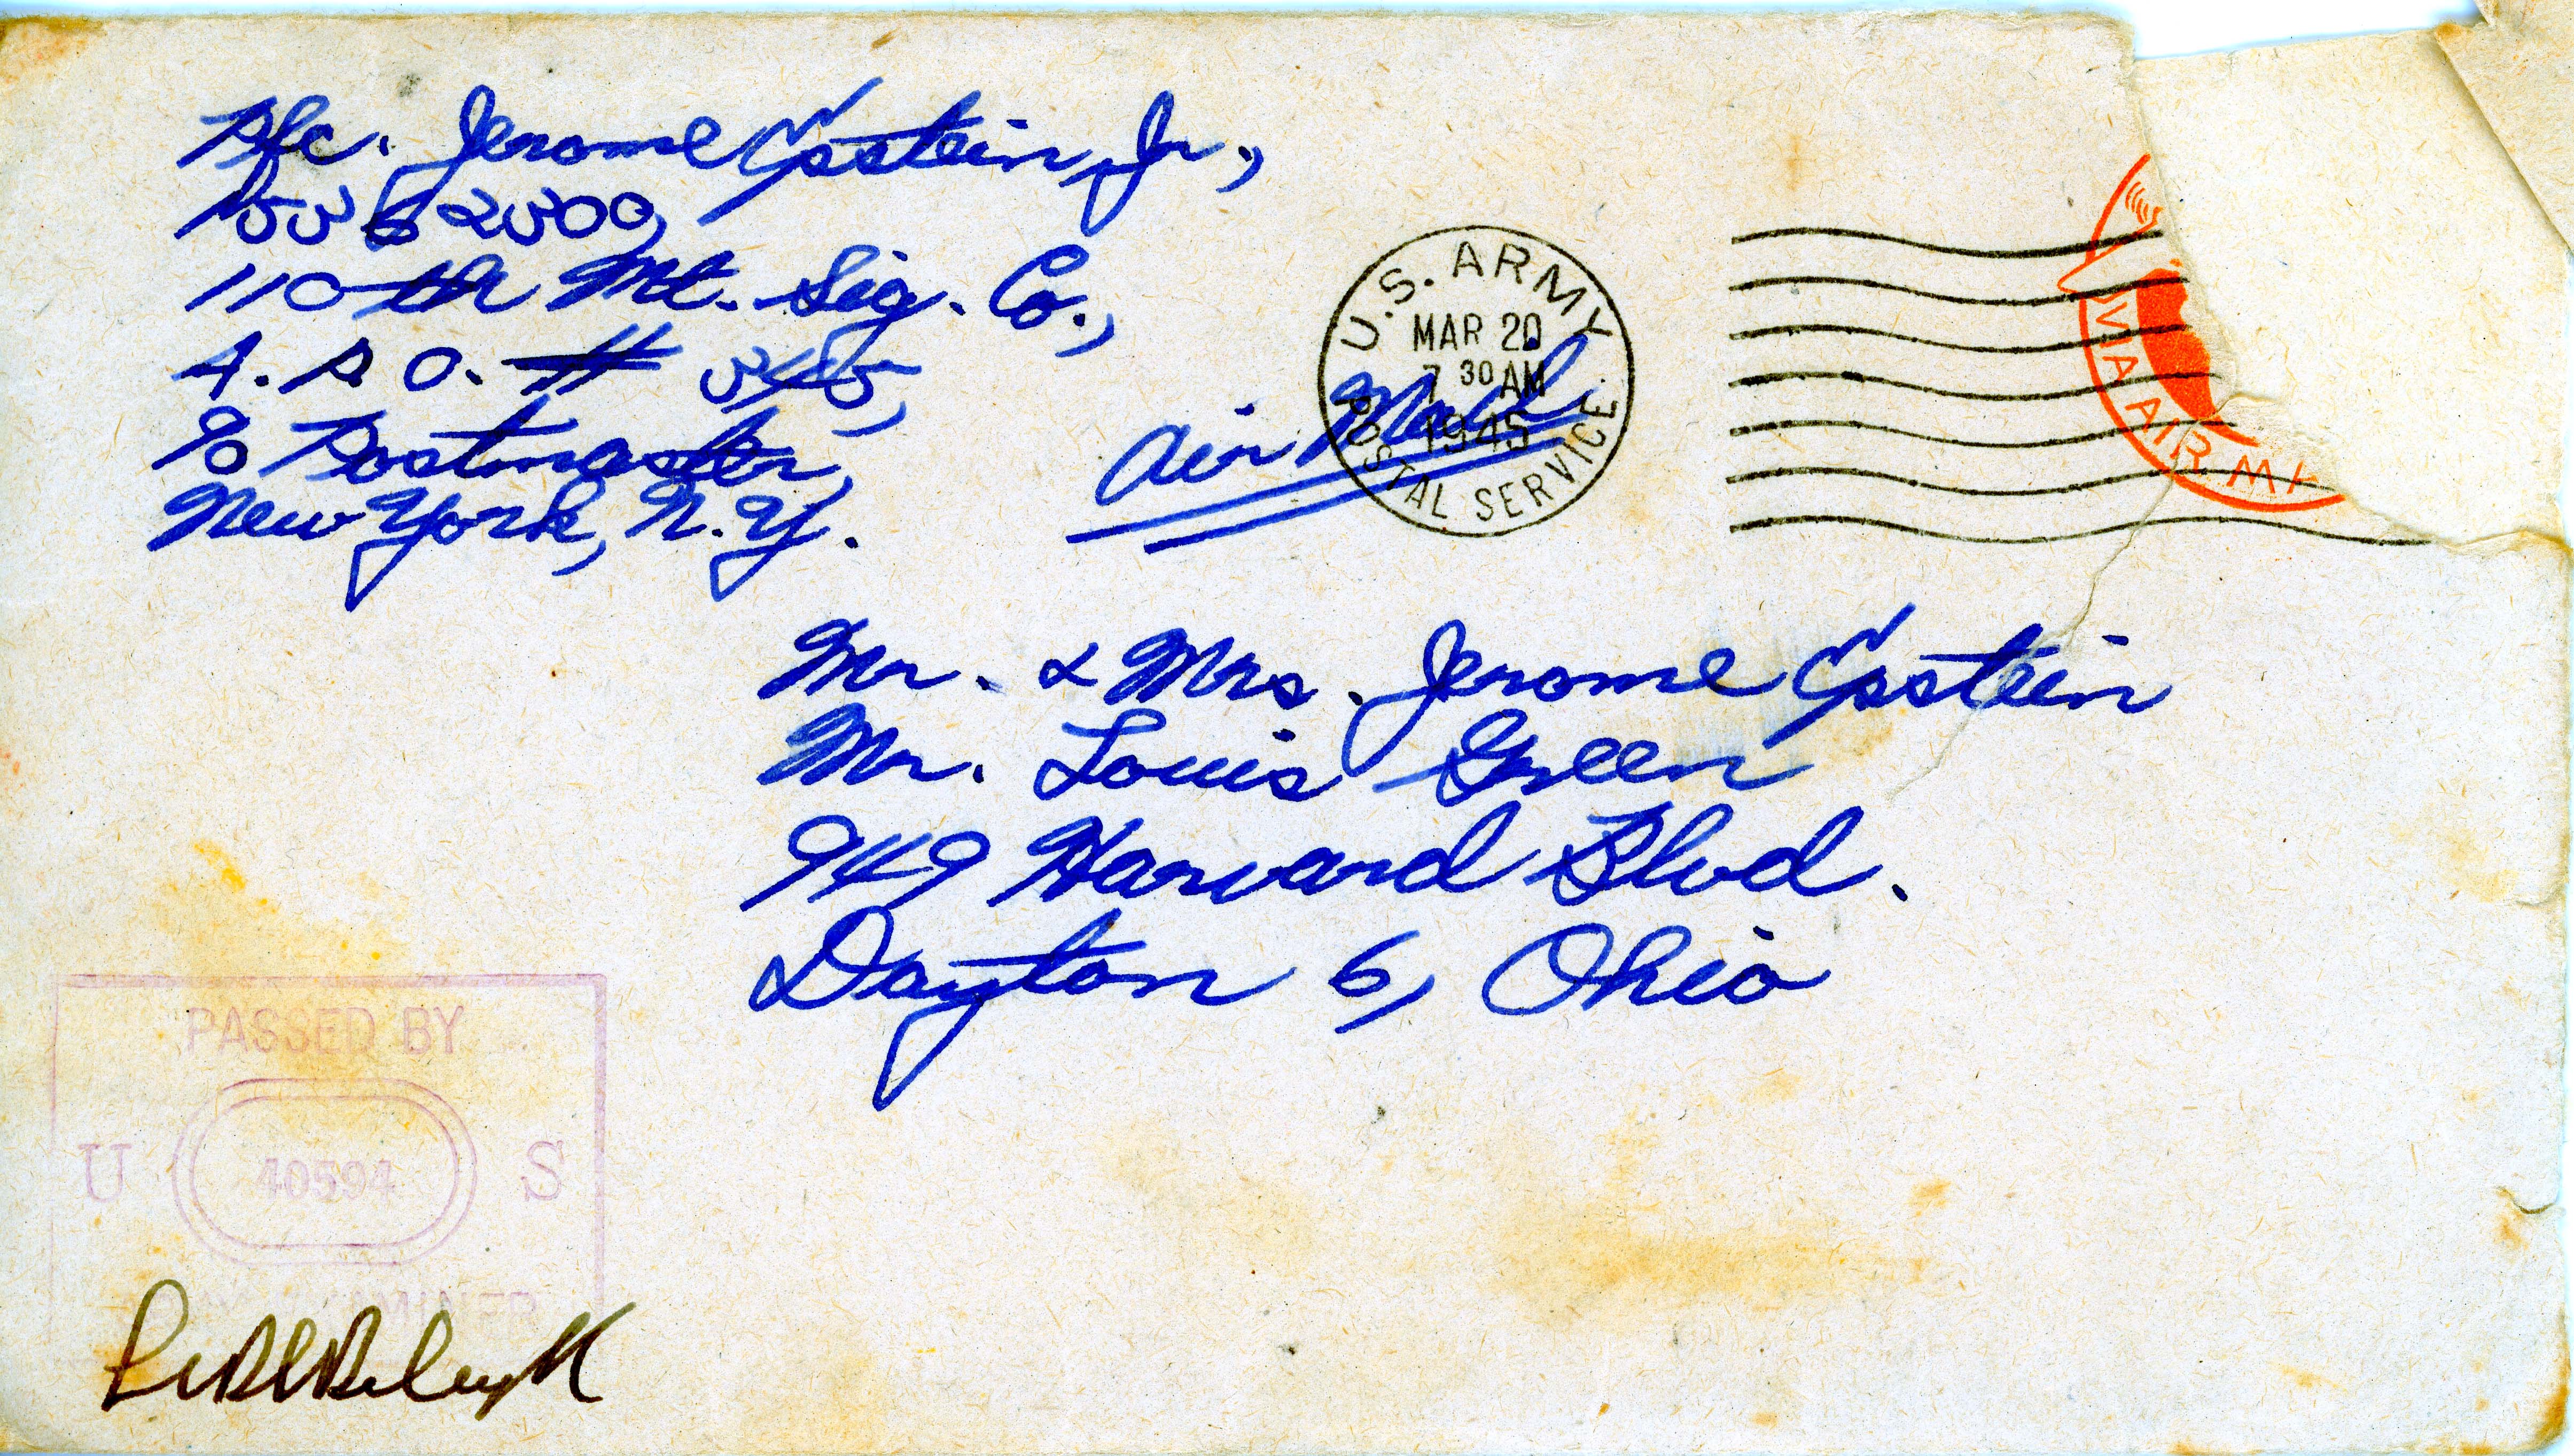 Pfc. Jerome Epstein, Jr.,
110th Mt. Sig. Co.,
A.P.O. # 345,
c/o Postmaster,
New York, N.Y.
Air Mail
U.S. ARMY
MAR 20
7 30 AM
1945
POSTAL SERVICE
VIA AIR
Mr. & Mrs. Jerome Epstein
Mr. Louis Green
949 Harvard Blvd.
Dayton 6, Ohio
PASSED BY
U 40594 S
EXAMINER